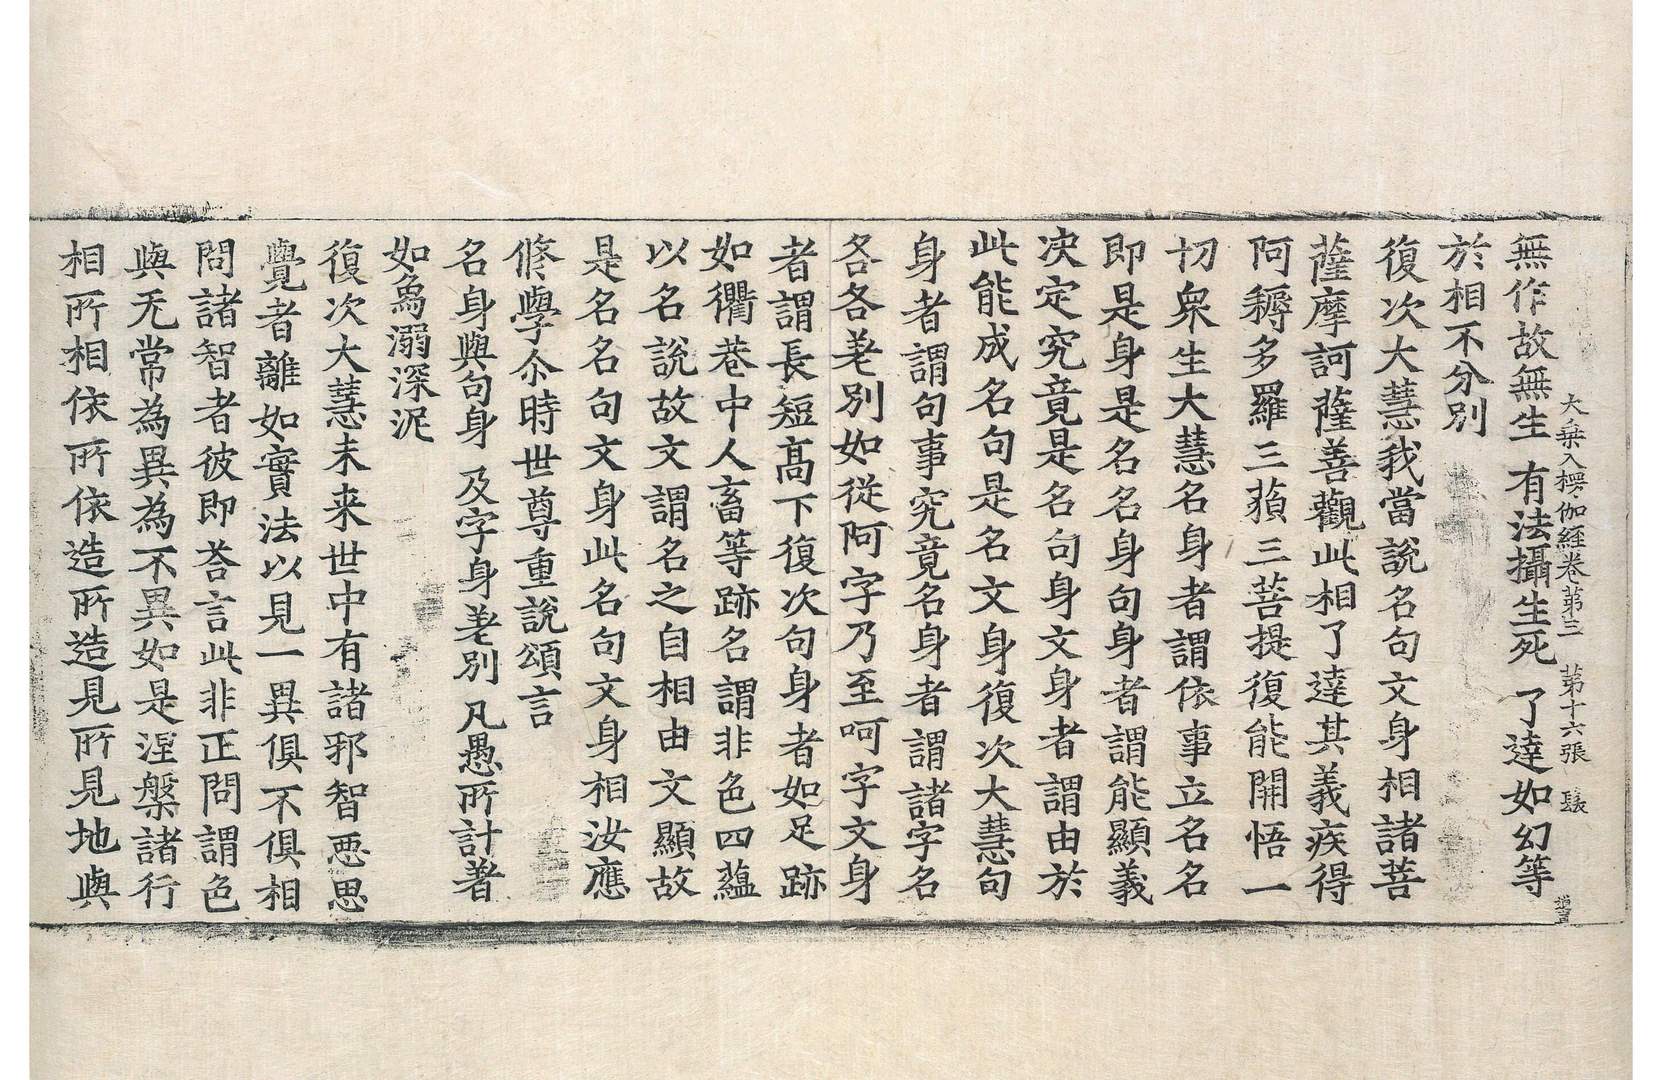 大乗入楞伽経卷第三 第十六張 髲
無作故無生 有法攝生死 了達如幻等
於相不分別
復次大慧我當說名句文身相諸菩
薩摩訶薩善觀此相了達其義疾得
阿耨多羅三藐三菩提復能開悟一
切衆生大慧名身者謂依事立名名
即是身是名名身句身者謂能顯義
决定究竟是名句身文身者謂由於
此能成名句是名文身復次大慧句
身者謂句事究竟名身者謂諸字名
各各差別如從阿字乃至呵字文身
者謂長短髙下復次句身者如足跡
如衢巷中人畜等跡名謂非色四蘊
以名說故文謂名之自相由文顯故
是名名句文身此名句文身相汝應
修學尒時世尊重說頌言
名身與句身 及字身差別 凡愚所計著
如象溺深泥
復次大慧未来世中有諸邪智惡思
覺者離如實法以見一異俱不俱相
問諸智者彼即荅言此非正問謂色
與无常為異為不異如是涅槃諸行
相所相依所依造所造見所見地與